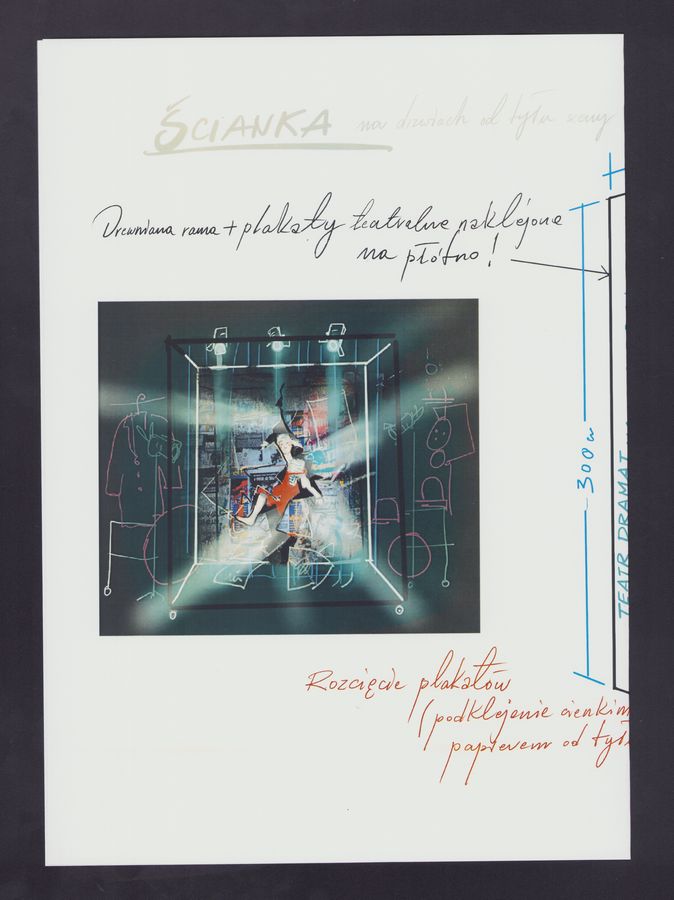 ŚCIANKA na drzwiach od tyłu sceny
Drewniana rama + plakaty teatralne naklejone
na płótno!
300
TEATR DRAMAT
Rozcięcie plakatów
(podklejenie cienkim
papierem od tył